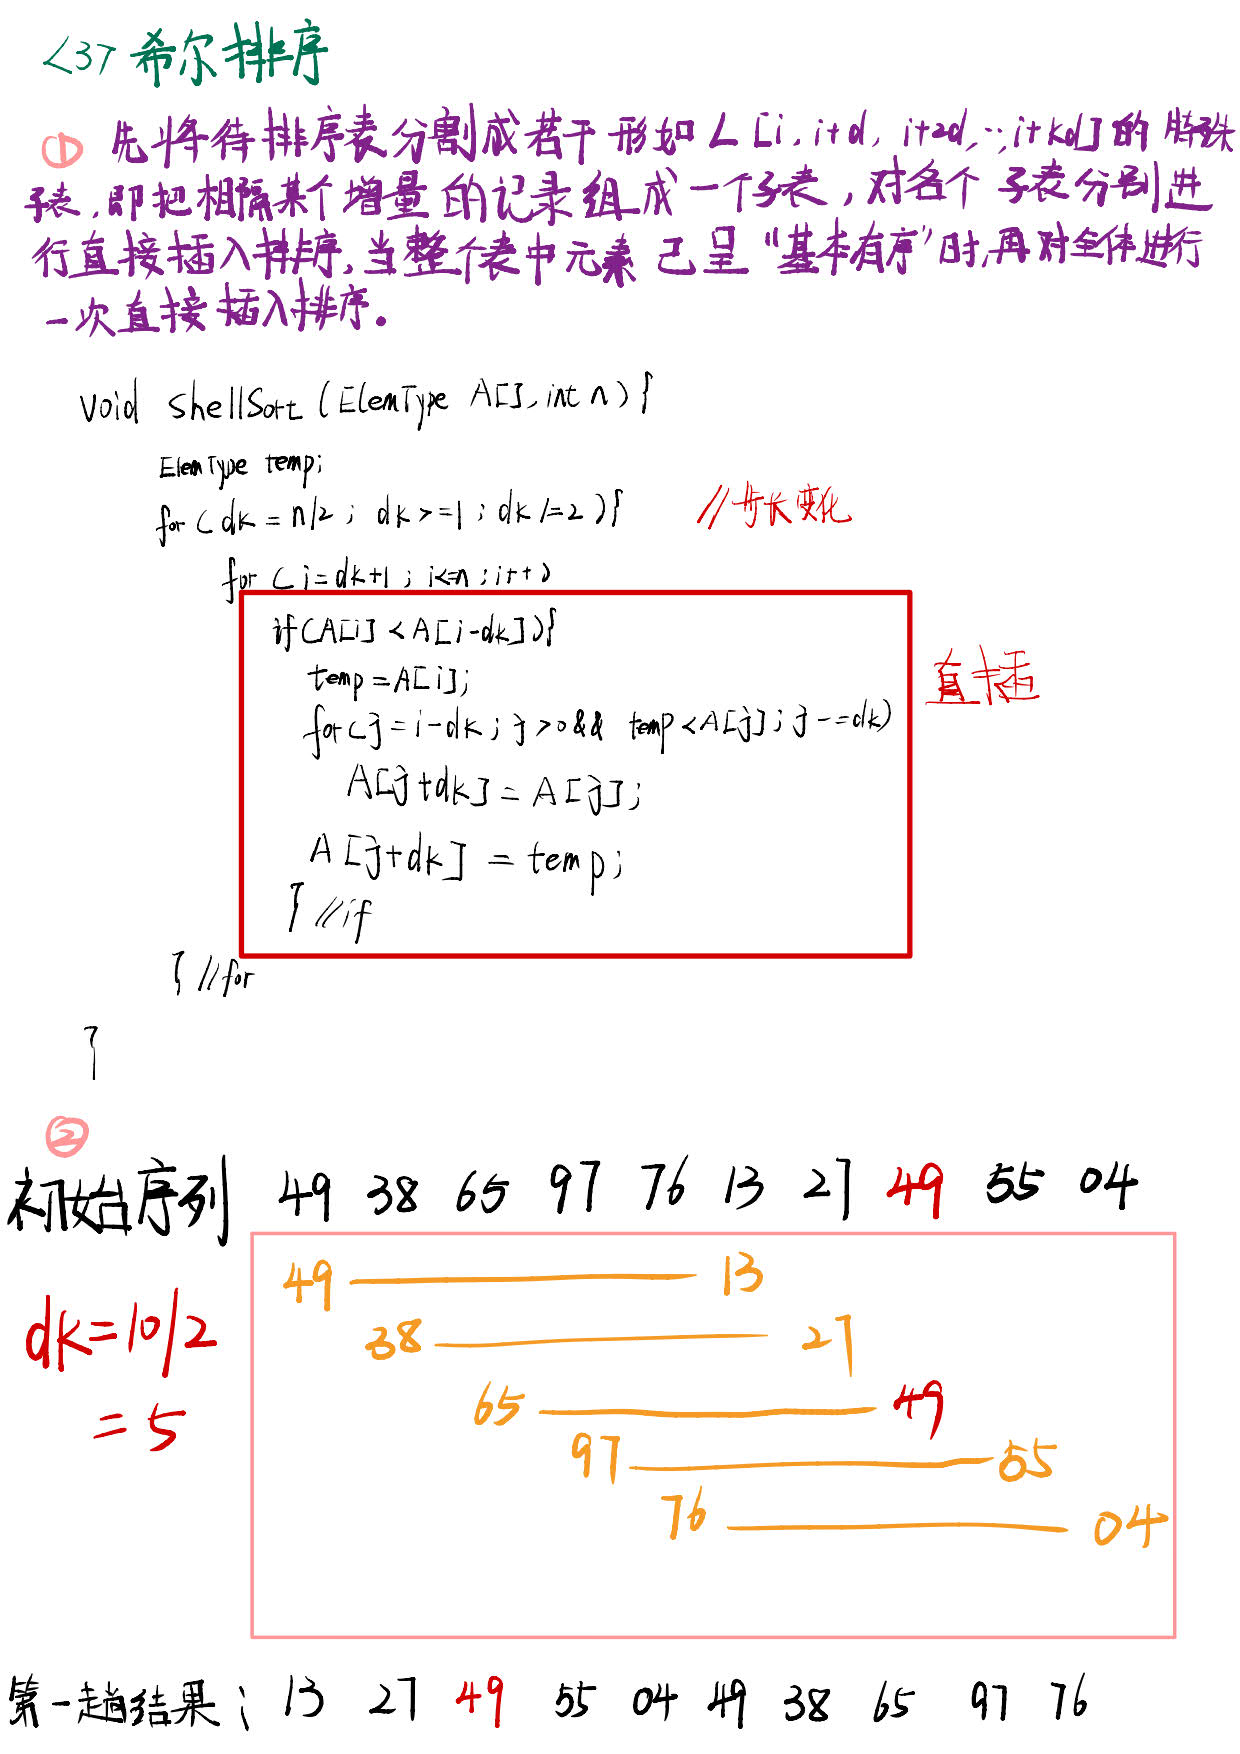 <3> 希尔排序
① 先将待排序表分割成若干形如L[i,i+d,i+2d,…,i+kd]的特殊
子表,即把相隔某个增量的记录组成一个子表,对各个子表分别进
行直接插入排序,当整个表中元素已呈“基本有序”时,再对全体进行
一次直接插入排序。
void shellSort(ElemType A[],int n){
ElemType temp;
for(dk=n/2; dk>=1; dk/=2){ //步长变化
for(i=dk+1;i<=n;i++)
if(A[i]<A[i-dk]){
temp=A[i];
直插
for(j=i-dk;j>0&& temp<A[j];j-=dk)
A[j+dk]=A[j];
A[j+dk]=temp;
} //if
} //for
}
②
初始序列 49 38 65 97 76 13 27 49 55 04
49 13
dk=10/2
38 27
=5
65 49
97 55
76 04
第一趟结果: 13 27 49 55 04 49 38 65 97 76